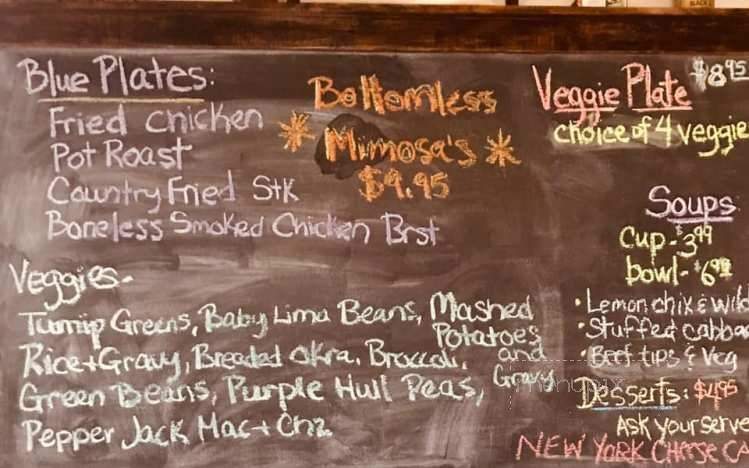 Blue Plates:
Fried chicken
Pot Roast
Country Fried Stk
Boneless Smoked Chicken Brst
Bottomless
* Mimosa's *
$9.95
Veggie Plate $8.95
choice of 4 veggie
Soups
Cup - $3.99
bowl - $6.99
• Lemon chik & wild
• Stuffed cabba
• Beef tips & Veg
Desserts: $4.95
Ask your serve
NEW YORK CHEESE CA
Veggies-
Turnip Greens, Baby Lima Beans, Mashed
Potatoes
and
Gravy
Rice + Gravy, Breaded Okra, Broccoli,
Green Beans, Purple Hull Peas,
Pepper Jack Mac + Chz